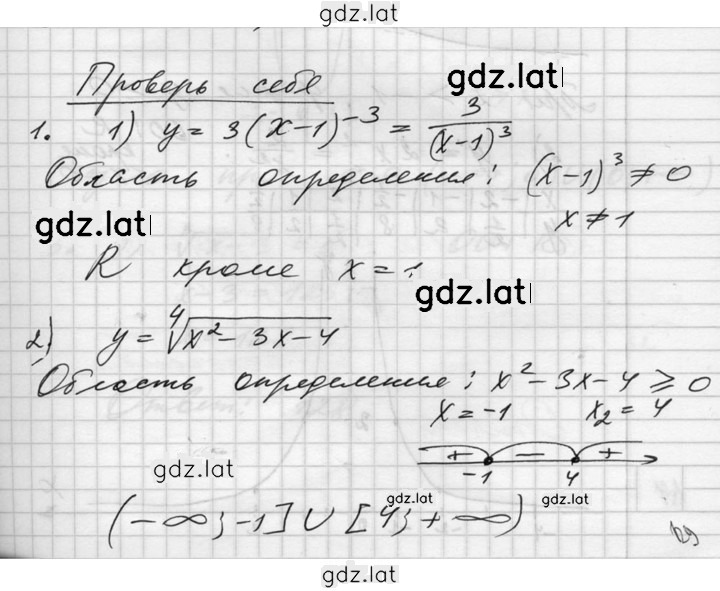 gdz.lat
Проверь себя
gdz.lat
1. 1) y = 3(x-1)^{-3} = \frac{3}{(x-1)^3}
Область определения: (x-1)^3 ≠ 0
gdz.lat
x ≠ 1
R кроме x = 1
gdz.lat
2) y = \sqrt[4]{x^2 - 3x - 4}
Область определения: x^2 - 3x - 4 ⩾ 0
x = -1 x_2 = 4
+ - +
-1 4
gdz.lat
gdz.lat gdz.lat
(-∞; -1] ∪ [4; +∞)
129
gdz.lat